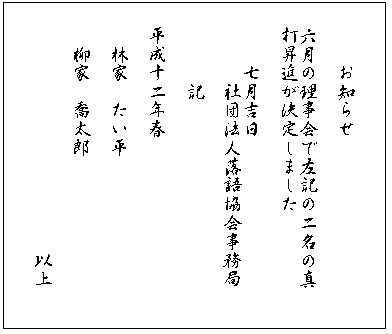 お知らせ
六月の理事会で左記の二名の真
打昇進が決定しました
七月吉日
社団法人落語協会事務局
記
平成十二年春
林家 たい平
柳家 喬太郎
以上